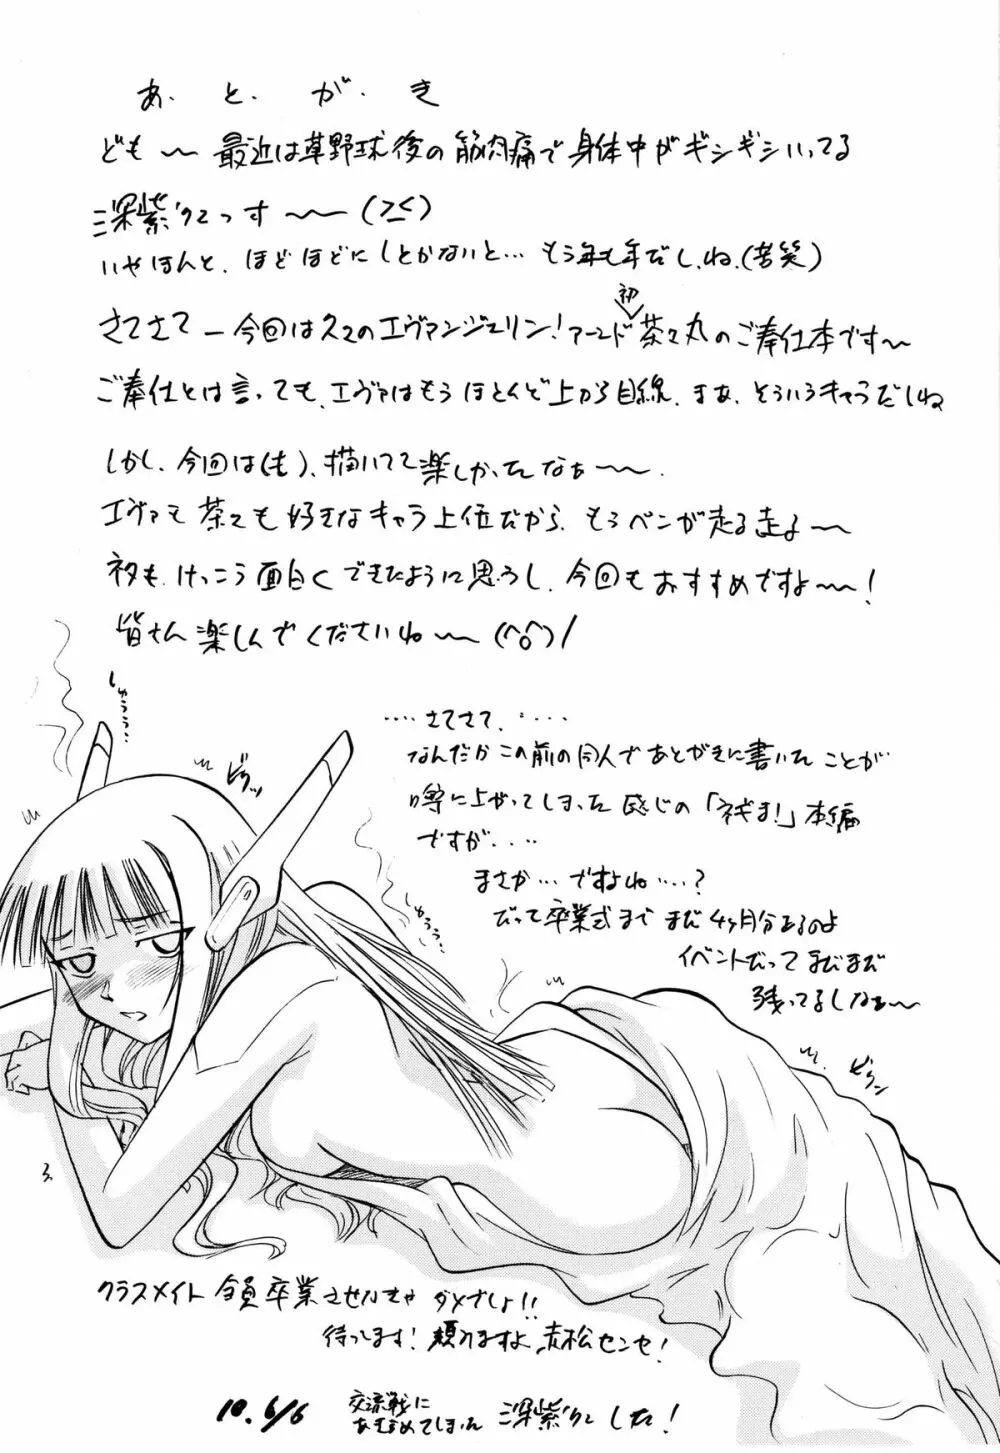 あ・と・が・き
ども〜最近は草野球後の筋肉痛で身体中がギシギシいってる
深紫でっす〜〜(><)
いやほんと、ほどほどにしとかないと… もう年も年だし、ね、(苦笑)
さてさて－今回は久々のエヴァンジェリン!アーンド初茶々丸のご奉仕本です〜
ご奉仕とは言っても、エヴァはもうほとんど上から目線、まぁ、そういうキャラだしね
しかし、今回は(も)、描いてて楽しかったなぁ〜〜
エヴァも茶々も好きなキャラ上位だから、もうペンが走る走る〜〜
ネタも、けっこう面白くできたように思うし、今回もおすすめですよ〜〜!
皆さん楽しんでくださいね〜〜(^o^)/
しゅううう…
ビクッ
‥‥さてさて、‥‥‥
なんだかこの前の同人であとがきに書いたことが
噂に上がってしまった感じの「ネギま!」本編
ですが‥‥
まさか…ですよね…‥?
だって卒業式までまだ4ヶ月分あるのよ
イベントだってまだまだ
残ってるしなぁ〜
ビクン
う、
クラスメイト全員卒業させなきゃダメでしょ!!
待ってます!頼りますよ、赤松センセ!
10.6/6
交流戦に
深紫でした!